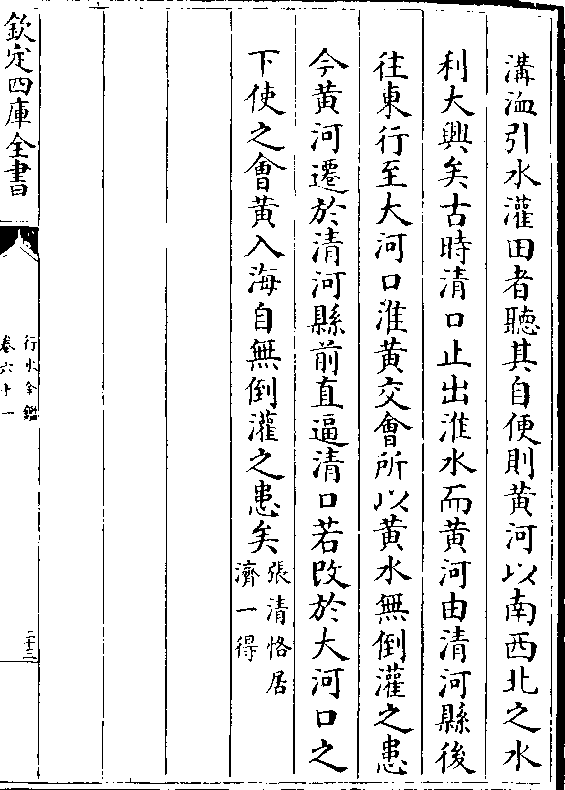 溝洫引水灌田者聽其自便則黄河以南西北之水
利大興矣古時清口止出淮水而黄河由清河縣後
往東行至大河口淮黄交會所以黄水無倒灌之患
今黄河遷於清河縣前直逼清口若改於大河口之
下使之會黄入海自無倒灌之患矣張清恪居
濟一得
欽定四庫全書
行水金鑑
卷六十一
二十三